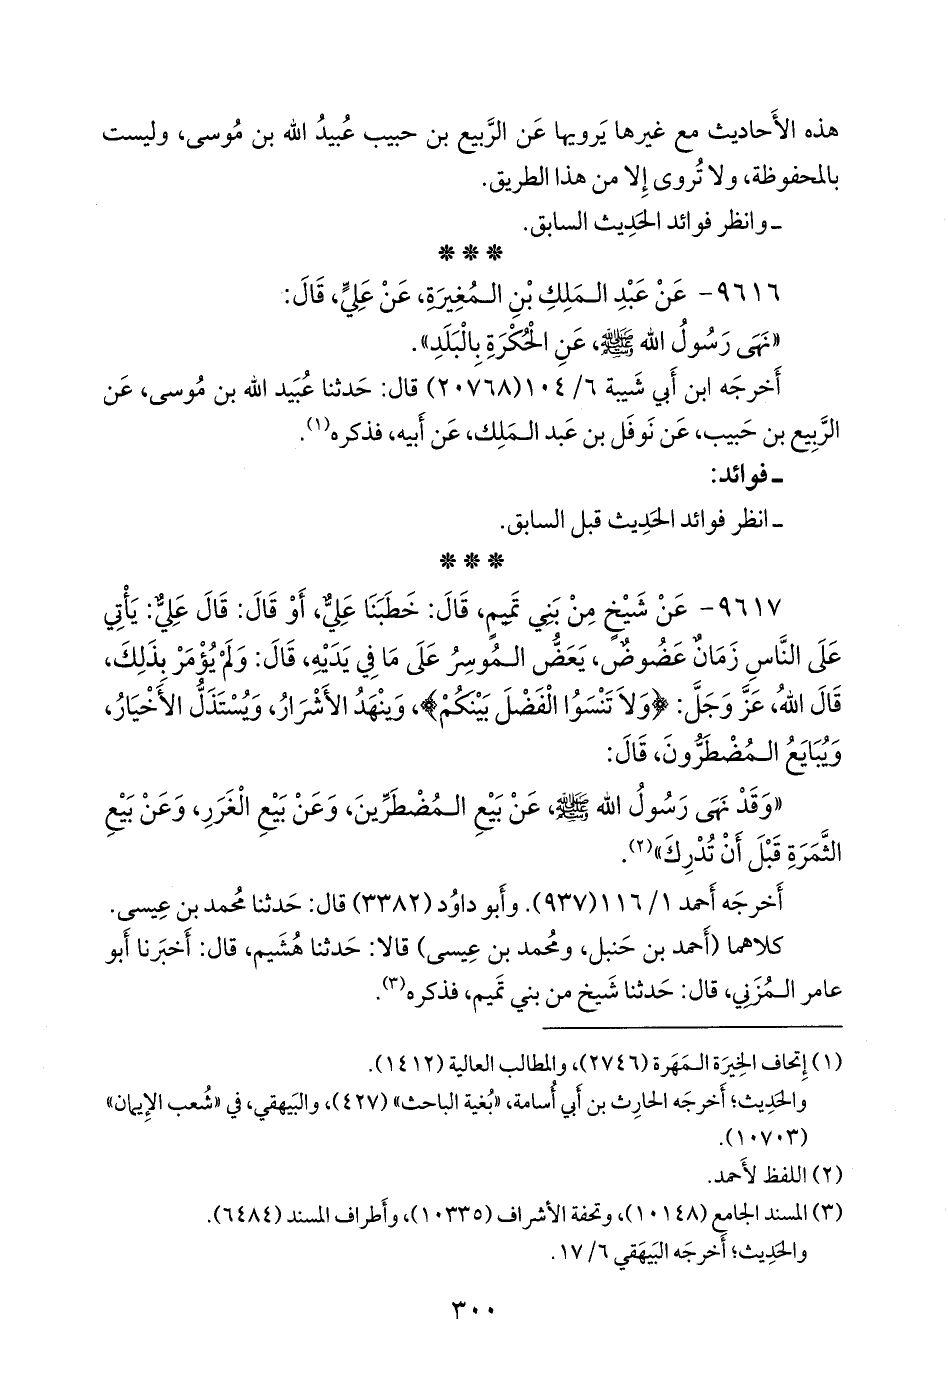 هذه الأَحاديث مع غيرها يَرويها عَن الرَّبيع بن حبيب عُبيدُ الله بن مُوسى، وليست
بالمحفوظة، ولا تُروى إِلا من هذا الطريق.
ـ وانظر فوائد الحَدِيث السابق.
* * *
٩٦١٦- عَنْ عَبْدِ الـمَلِكِ بْنِ الـمُغِيرَةِ، عَنْ عَلِيٍّ، قَالَ:
«نَهَى رَسُولُ الله ﷺ، عَنِ الْحُكْرَةِ بِالْبَلَدِ».
أَخرجَه ابن أَبي شَيبة ٦/ ١٠٤(٢٠٧٦٨) قال: حَدثنا عُبَيد الله بن مُوسى، عَن
الرَّبِيع بن حَبيب، عَن نَوفَل بن عَبد الـمَلِك، عَن أَبيه، فذكره(١).
ـ فوائد:
ـ انظر فوائد الحَدِيث قبل السابق.
* * *
٩٦١٧- عَنْ شَيْخٍ مِنْ بَنِي تَمِيمٍ، قَالَ: خَطَبَنَا عَلِيٌّ، أَوْ قَالَ: قَالَ عَلِيٌّ: يَأْتِي
عَلَى النَّاسِ زَمَانٌ عَضُوضٌ، يَعَضُّ الـمُوسِرُ عَلَى مَا فِي يَدَيْهِ، قَالَ: وَلَمْ يُؤْمَرْ بِذَلِكَ،
قَالَ اللهُ، عَزَّ وَجَلَّ: ﴿وَلاَ تَنْسَوُا الْفَضْلَ بَيْنَكُمْ﴾، وَيَنْهَدُ الأَشْرَارُ، وَيُسْتَذَلُّ الأَخْيَارُ،
وَيُبَايَعُ الـمُضْطَرُّونَ، قَالَ:
«وَقَدْ نَهَى رَسُولُ الله ﷺ، عَنْ بَيْعِ الـمُضْطَرِّينَ، وَعَنْ بَيْعِ الْغَرَرِ، وَعَنْ بَيْعِ
الثَّمَرَةِ قَبْلَ أَنْ تُدْرِكَ»(٢).
أَخرجَه أَحمد ١/ ١١٦(٩٣٧). وأَبو داوُد (٣٣٨٢) قال: حَدثنا مُحمد بن عِيسى.
كلاهما (أَحمد بن حَنبل، ومُحمد بن عِيسى) قالا: حَدثنا هُشَيم، قال: أَخبَرنا أَبو
عامر الـمُزَني، قال: حَدثنا شَيخ من بني تَميم، فذكره(٣).
(١) إِتحاف الخِيرَة الـمَهَرة (٢٧٤٦)، والمطالب العالية (١٤١٢).
والحَدِيث؛ أَخرجَه الحارِث بن أَبي أُسامة، «بُغية الباحث» (٤٢٧)، والبَيهقي، في «شُعب الإِيمان»
(١٠٧٠٣).
(٢) اللفظ لأَحمد.
(٣) المسند الجامع (١٠١٤٨)، وتحفة الأشراف (١٠٣٣٥)، وأَطراف المسند (٦٤٨٤).
والحَدِيث؛ أَخرجَه البَيهَقي ٦/ ١٧.
٣٠٠